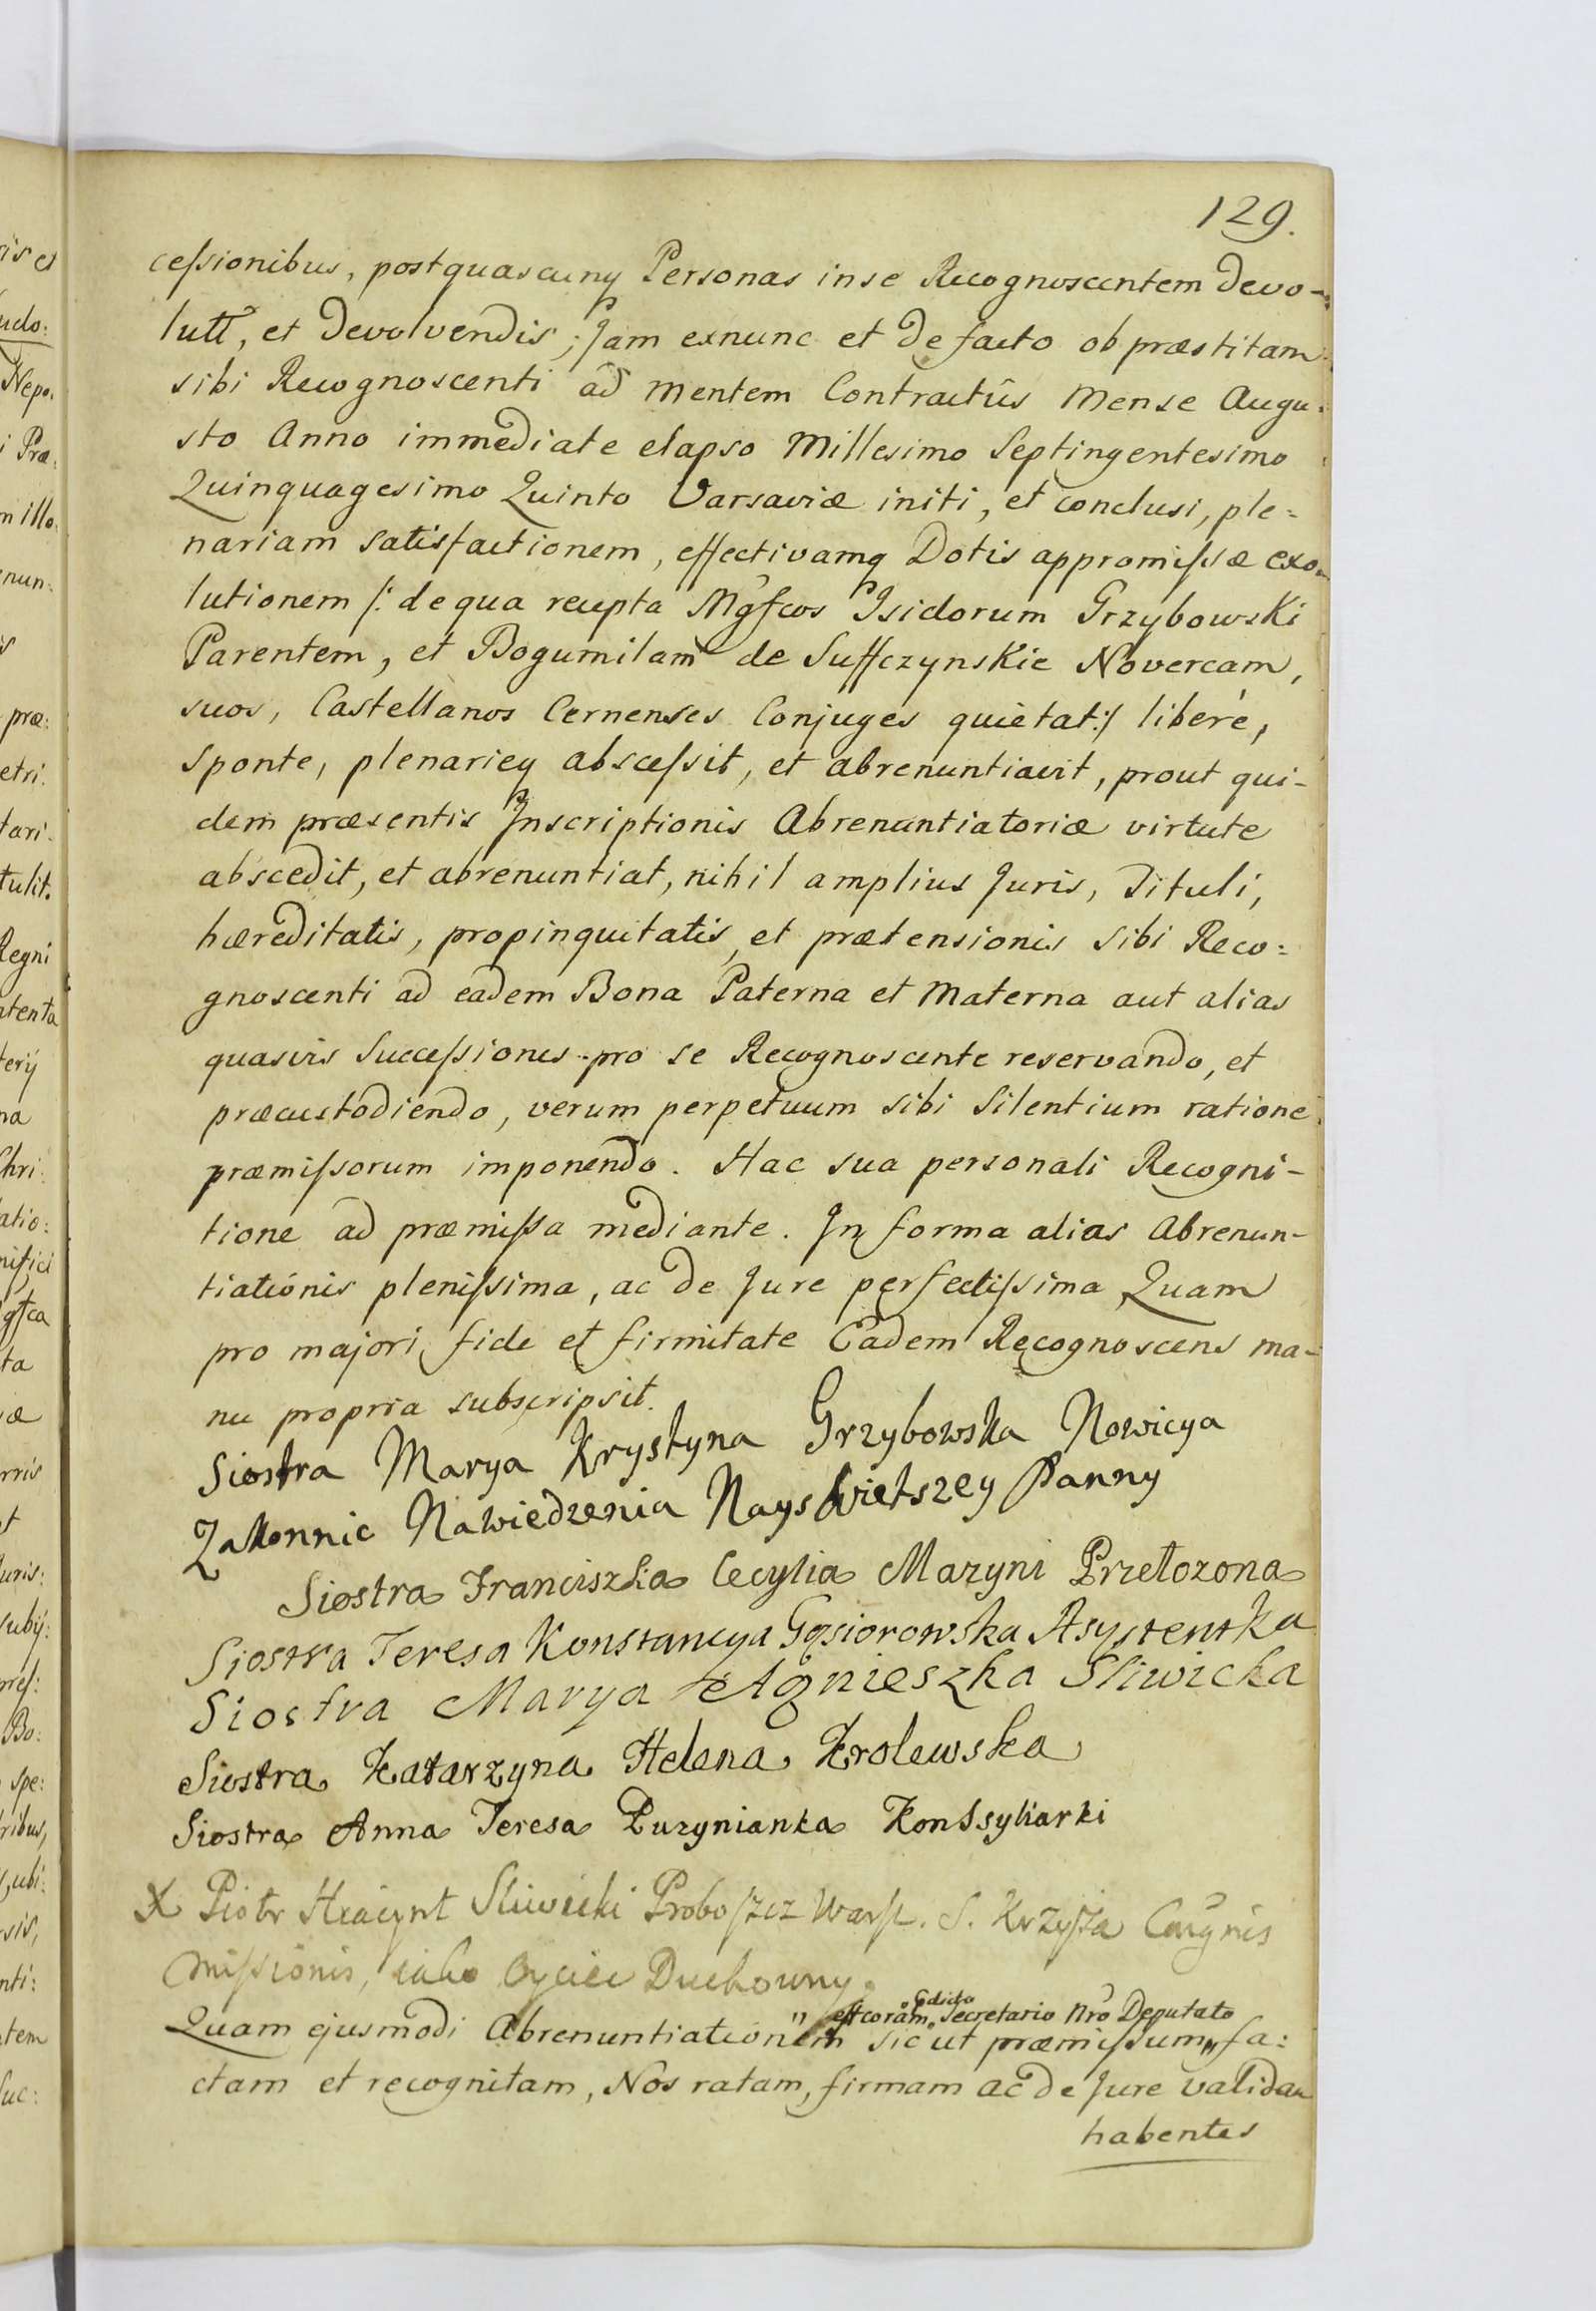 129.
cessionibus, postquascunq Personas inse Recognoscentem Devo-
lutt, et Devolvendis; Jam exnunc et de facto ob præstitam
sibi Recognoscenti ad mentem Contractûs Mense Augu-
sto Anno immediate elapso Millesimo Septingentesimo
Quinquagesimo Quinto Varsaviæ initi, et conclusi, ple=
nariam satisfactionem, effectivamq Dotis appromissæ exo-
lutionem /: de qua recepta Mgfcos Isidorum Grzybowski
Parentem, et Bogumilam de Suffczynskie Novercam,
suos, Castellanos Cernenses Conjuges quietat :/ liberè,
sponte, plenarieq abscessit, et abrenuntiavit, prout qui-
dem præsentis Inscriptionis Abrenuntiatoriæ virtute
abscedit, et abrenuntiat, nihil amplius Juris, Tituli,
hæreditatis, propinquitatis, et prætensionis sibi Reco=
gnoscenti ad eadem Bona Paterna et Materna aut alias
quasvis Successiones pro se Recognoscente reservando, et
præcustodiendo, verum perpetuum sibi Silentium ratione
præmissorum imponendo. Hac sua personali Recogni-
tione ad præmissa mediante. In forma alias Abrenun-
tiationis plenissima, ac de Jure perfectissima Quam
pro majori fide et firmitate Eadem Recognoscens ma-
nu propria subscripsit.
Siostra Marya Krystyna Grzybowska Nowicya
Zakonnic Nawiedzenia Nayswietszey Panny
Siostra Franciszka Cecylia Mazyni Przełozona
Siostra Teresa Konstancya Gąsiorowska Asystentka
Siostra Marya Agnieszka Sliwicka
Siostra Katarzyna Helena Krolewska
Siostra Anna Teresa Puzynianka Konssyliarki
X Piotr Hiacynt Sliwicki Proboszcz Warsz. S. Krzyża Congnis
Missionis, iako Oyciec Duchowny.
"est coram "Edicto" Secretario Nrô Deputato
Quam ejusmodi Abrenuntiationem sic ut præmissum" fa=
ctam et recognitam, Nos ratam, firmam ac de Jure validam
habentes